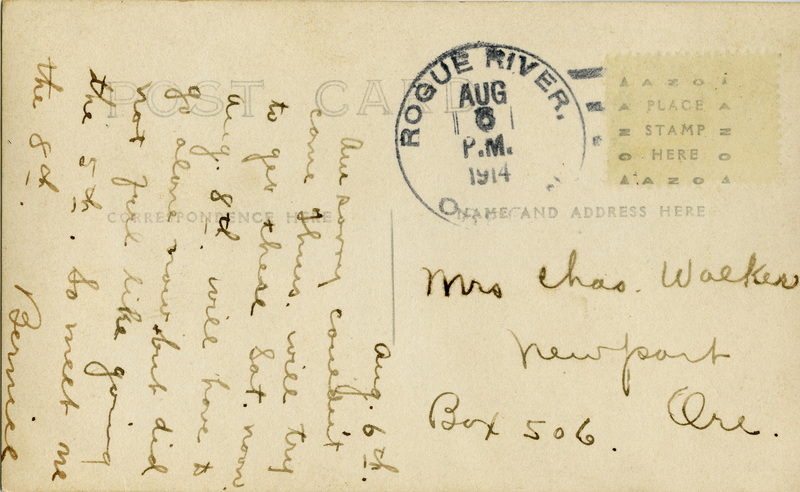 POST CARD
CORRESPONDENCE HERE
NAME AND ADDRESS HERE
ROGUE RIVER,
AUG
6
P.M.
1914
AZO
PLACE
STAMP
HERE
AZO
Aug. 6th.
Am sorry couldn't
come Thurs. will try
to get there Sat. noon
Aug. 8th will have to
go alone now but did
not feel like going
the 5th. So meet me
the 8th.
Bernice
Mrs Chas. Walker
Newport
Ore.
Box 506.